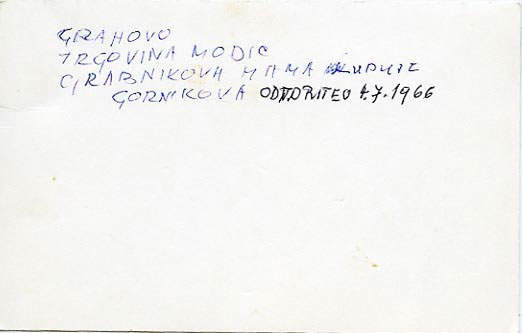 GRAHOVO
TRGOVINA MODIC
GRABNIKOVA MAMA KUPUJE
GORNIKOVA ODTORITEV 4.7.1966